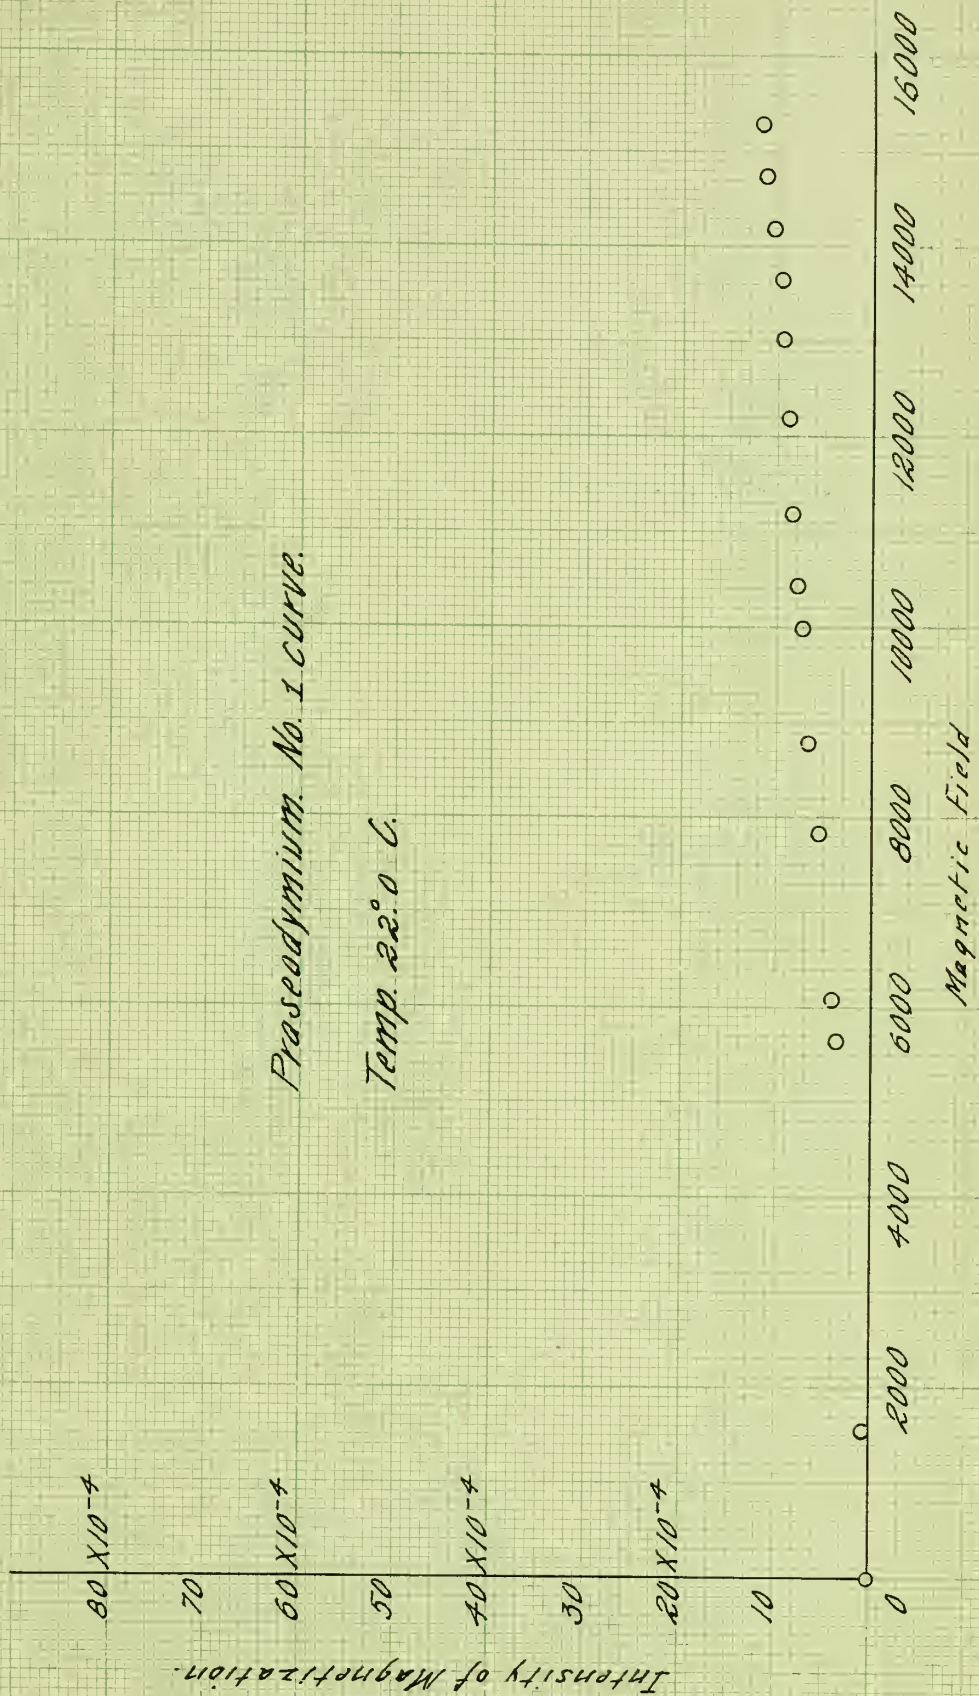 Praseodymium. No. 1 curve.
Temp. 22.°0 C.
Intensity of Magnetization.
80 X10-4
70
60 X10-4
50
40 X10-4
30
20 X10-4
10
0
2000
4000
6000
8000
10000
12000
14000
16000
Magnetic Field